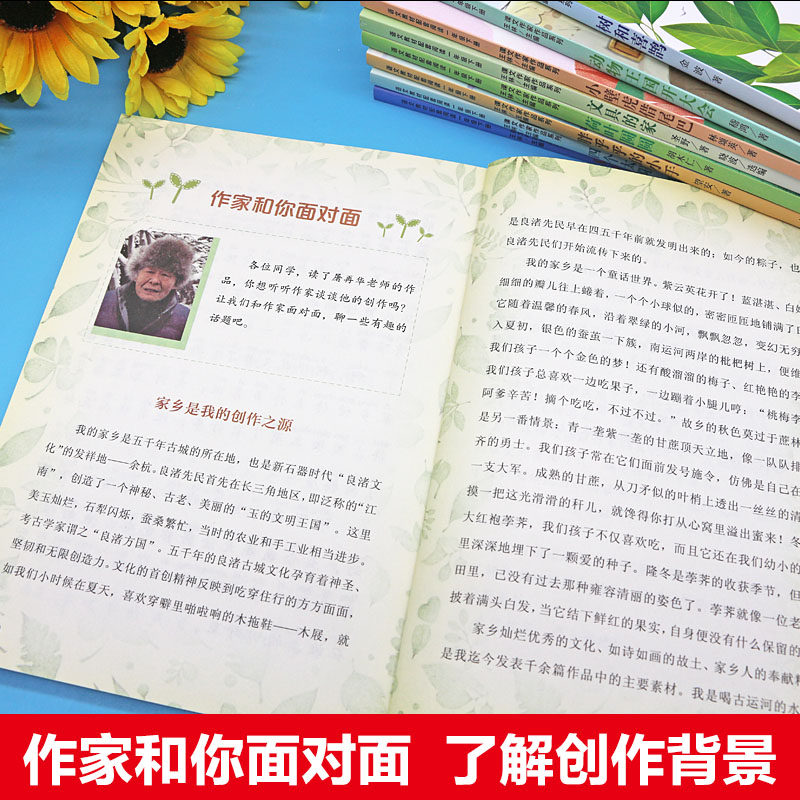 树和喜鹊
金波/著
动物王国开大会
小壁虎借尾巴
文具的家
荷叶圆圆
作家和你面对面
各位同学，读了屠再华老师的作
品，你想听听作家谈谈他的创作吗？
让我们和作家面对面，聊一些有趣的
话题吧。
家乡是我的创作之源
我的家乡是五千年古城的所在地，也是新石器时代“良渚文
化”的发祥地——余杭。良渚先民首先在长三角地区，即泛称的“江
南”，创造了一个神秘、古老、美丽的“玉的文明王国”。这里
美玉灿烂，石犁闪烁，蚕桑繁忙，当时的农业和手工业相当进步。
考古学家谓之“良渚方国”。五千年的良渚古城文化孕育着神圣、
坚韧和无限创造力。文化的首创精神反映到吃穿住行的方方面面，
如我们小时候在夏天，喜欢穿噼里啪啦响的木拖鞋——木屐，就
是良渚先民早在四五千年前就发明出来的；如今的粽子，也
良渚先民们开始流传下来的。
我的家乡是一个童话世界。紫云英花开了！蓝湛湛、白
细细的瓣儿往上蜷着，一个个小球似的，密密匝匝地铺满了
它随着温馨的春风，沿着翠绿的小河，飘飘忽忽，变幻无穷
入夏初，银色的蚕茧一下蔟，南运河两岸的枇杷树上，便维
我们孩子一个个金色的梦！还有酸溜溜的梅子、红艳艳的李
我们孩子总喜欢一边吃果子，一边蹦着小腿儿哼：“桃梅李
阿爹辛苦！摘个吃吃，不过不过。”故乡的秋色莫过于蔗林
是另一番情景：青一垄紫一垄的甘蔗顶天立地，像一队队排
齐的勇士。我们孩子常在它们面前发号施令，仿佛是自己在
一支大军。成熟的甘蔗，从刀矛似的叶梢上透出一丝丝的清
摸一把这光滑滑的秆儿，就馋得你打从心窝里溢出蜜来！冬
大红袍荸荠，我们孩子不仅喜欢吃，而且它还在我们幼小的
里深深地埋下了一颗爱的种子。隆冬是荸荠的收获季节，但
田里，已没有过去那种雍容清丽的姿色了。荸荠就像一位老
披着满头白发，当它结下鲜红的果实，自身便没有什么保留的
家乡灿烂优秀的文化、如诗如画的故土、家乡人的奉献精
是我迄今发表千余篇作品中的主要素材。我是喝古运河的水
作家和你面对面 了解创作背景